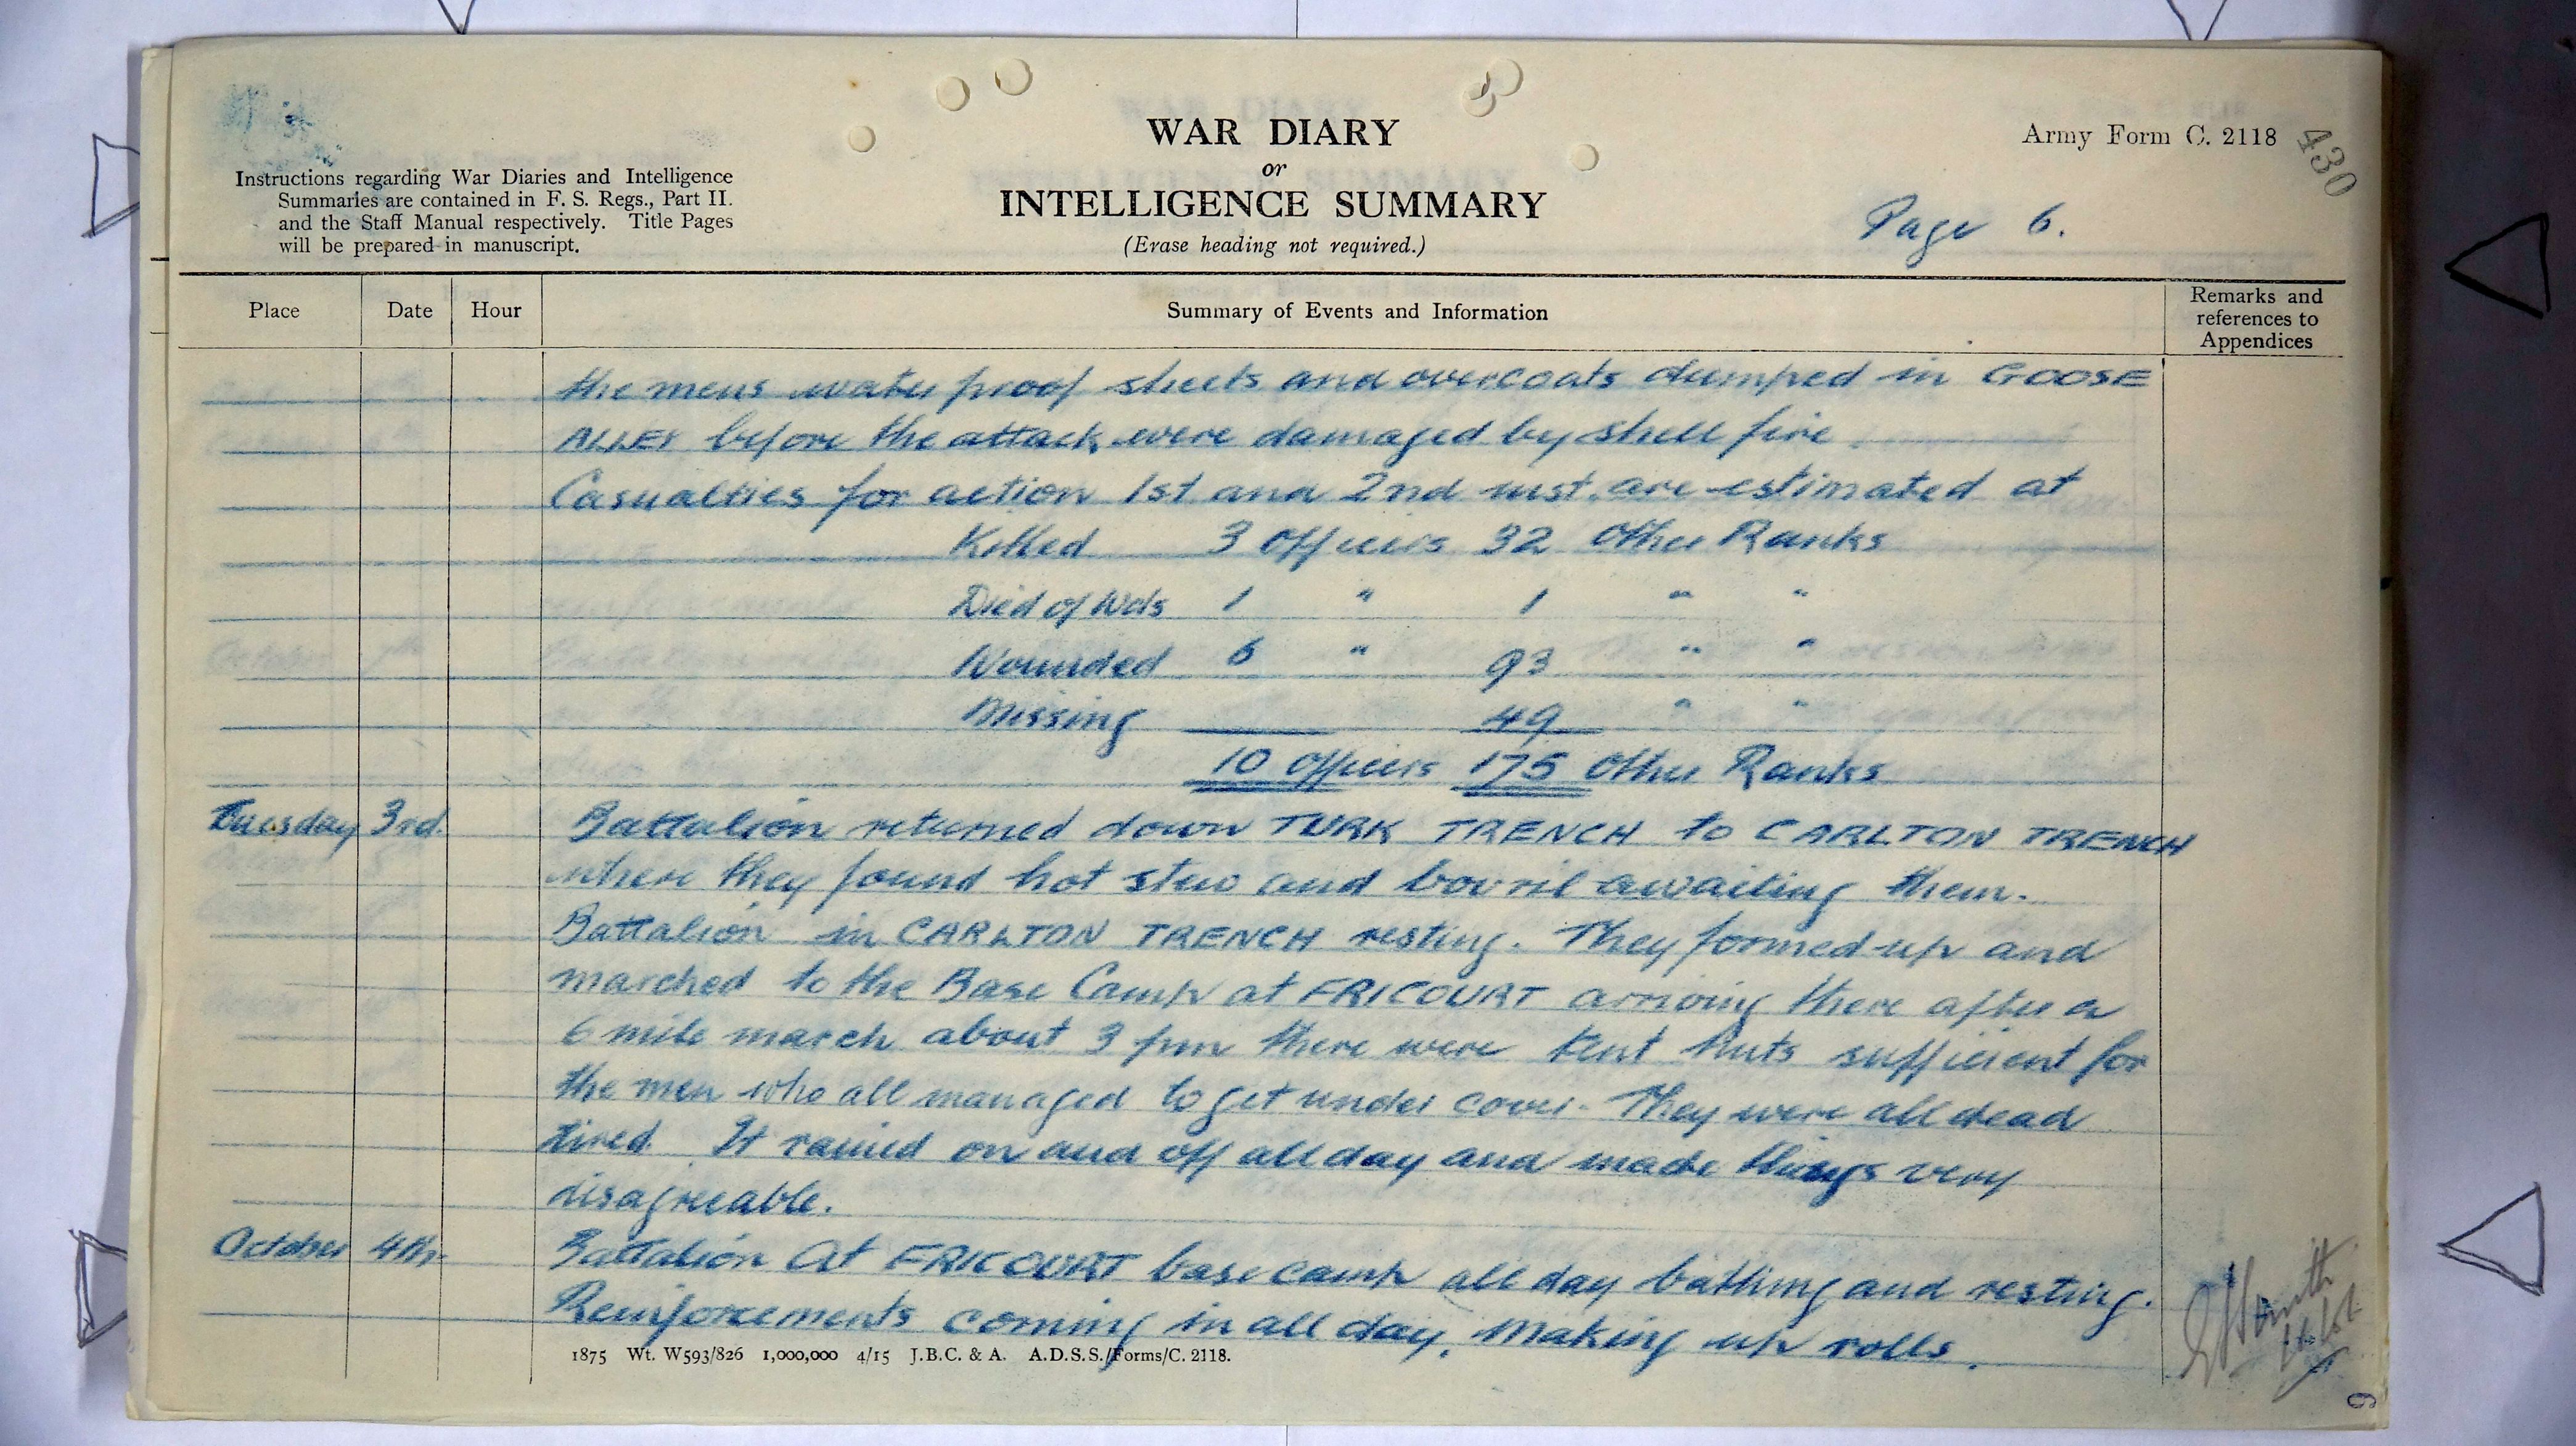 WAR DIARY
or
INTELLIGENCE SUMMARY
(Erase heading not required.)
Army Form C. 2118
430
Instructions regarding War Diaries and Intelligence
Summaries are contained in F. S. Regs., Part II.
and the Staff Manual respectively. Title Pages
will be prepared in manuscript.
Page 6.
Place Date Hour Summary of Events and Information Remarks and references to Appendices
the mens water proof sheets and overcoats dumped in GOOSE
ALLEY before the attack were damaged by shell fire.
Casualties for action 1st and 2nd inst. are estimated at
Killed 3 Officers 32 Other Ranks
Died of Wds 1 " 1 " "
Wounded 6 " 93 " "
Missing 49 " "
10 Officers 175 Other Ranks
Tuesday 3rd. Battalion returned down TURK TRENCH to CARLTON TRENCH
where they found hot stew and bovril awaiting them.
Battalion in CARLTON TRENCH resting. They formed up and
marched to the Base Camp at FRICOURT arriving there after a
6 mile march about 3 pm there were tent huts sufficient for
the men who all managed to get under cover. They were all dead
tired. It rained on and off all day and made things very
disagreeable.
October 4th. Battalion at FRICOURT base camp all day bathing and resting.
Reinforcements coming in all day. Making up rolls.
1875 Wt. W593/826 1,000,000 4/15 J.B.C. & A. A.D.S.S./Forms/C. 2118.
6